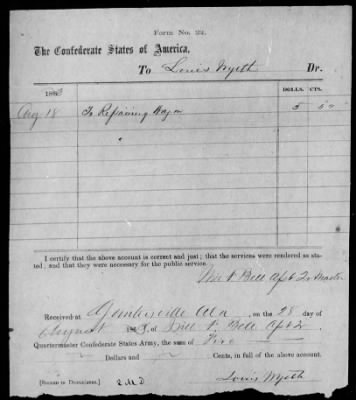 Form No. 22.
The Confederate States of America,
To Louis Wyeth Dr.
1863 DOLLS. CTS.
Aug 18 To Repairing Wagon 5
I certify that the above account is correct and just; that the services were rendered as sta-
ted; and that they were necessary for the public service.
Bell
Received at Ala, on the 28 day of
August 1863, of P. Bell
Quartermaster Confederate States Army, the sum of Five
Dollars and Cents, in full of the above account.
[SIGNED IN DUPLICATES.] Louis Wyeth